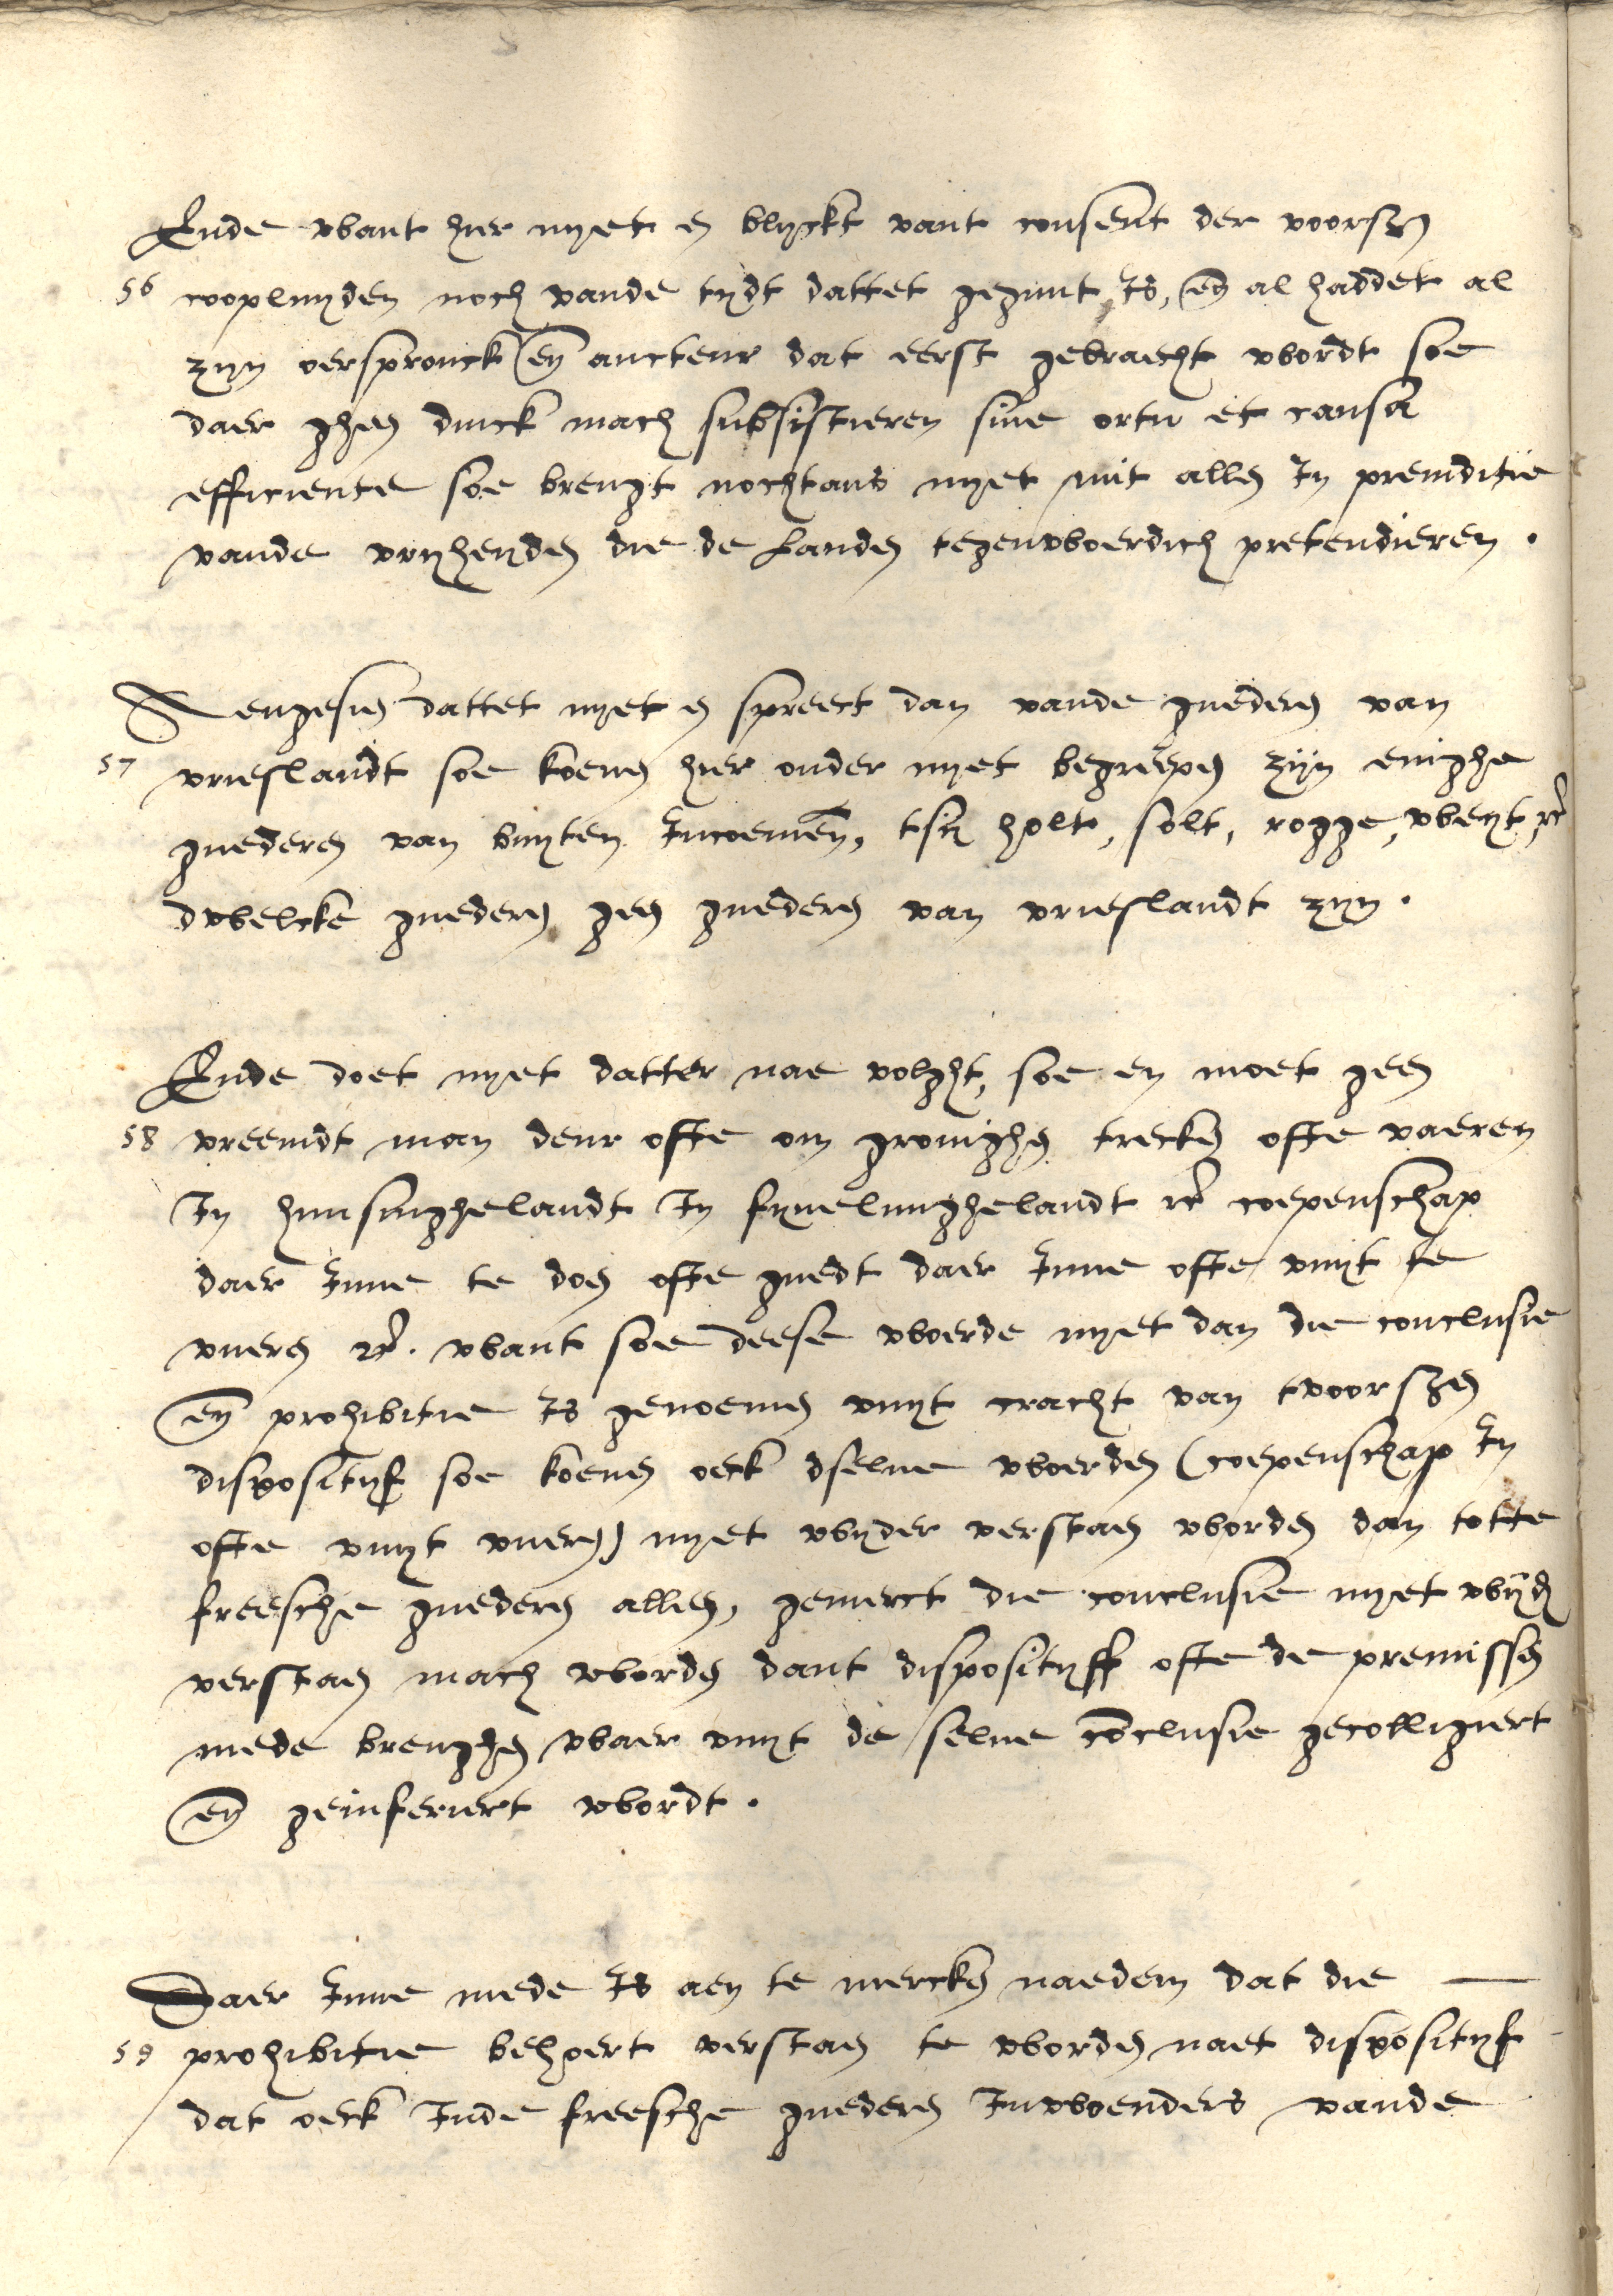 Ende want hier nyet en blyckt vant consent der voorsz
56 coopluyden noch vande tydt dattet gegunt Is, en al haddet al
zyn oerspronck en aucteur dat eerst gebracht wordt soe
daer gheen dinck mach subsistieren sine ortu et causa
efficiente soe brengt nochtans nyet mit allen In preiuditie
vande vryheyden die de Landen tegenwoerdich pretendieren.
Aengesien dattet nyet en spreect dan vande guederen van
57 vrieslandt soe koenen hier onder nyet begrepen zyn enighe
guederen van buyten Incoemen, tsy holt, solt, rogge, weyt, etc
dwelcke guederen geen guederen van vrieslandt zyn.
Ende doet nyet datter nae volght, soe en moet geen
58 vreemdt man deur ofte om gronighen trecken ofte vaeren
In hunsinghelandt In fyvelinghelandt etc coepenschap
daer Inne te doen ofte guedt daer Inne ofte vuyt te
vueren etc. want soe deese woerde nyet dan die conclusie
en prohibitie Is genoemen vuyt cracht van tvoorszen
dispositijf soe koenen oeck dselue woerden (coepenschap In
ofte vuyt vueren) nyet wyder verstaen worden dan totte
freesche guederen alleen, gemerct die conclusie nyet wyder
verstaen mach worden dant dispositijff ofte de premissen
mede brenghen waer vuyt de selue conclusie gecolligiert
en geinferiert wordt.
Daer Inne mede Is aen te mercken naedem dat die
59 prohibitie behoert verstaen te worden naet dispositijf
dat oeck Inde freesche guederen Inwoenders vande